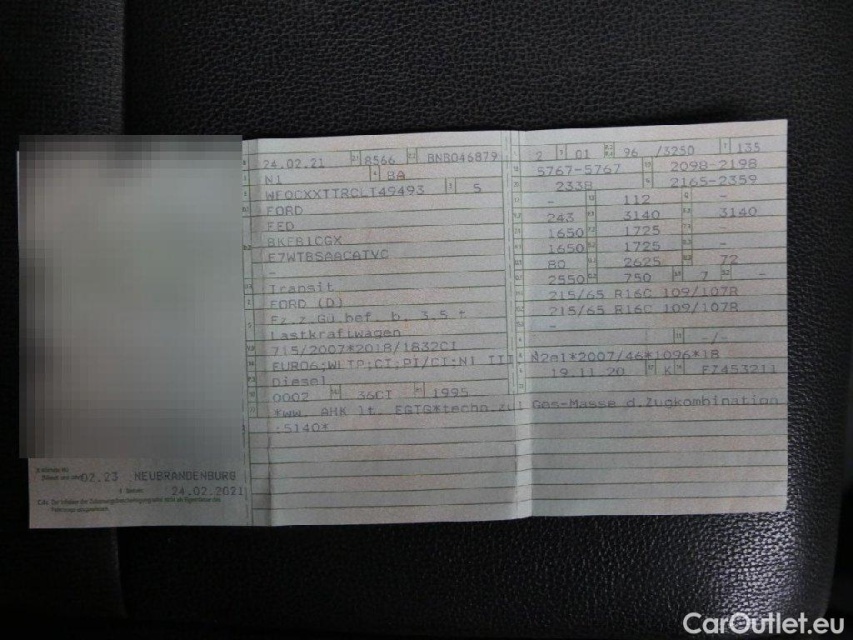 24.02.21 8566 BNB046879
N1 BA
WF0CXXTTRCLT49493 5
FORD
FED
BKFB1CGX
E7WTBSAACATVC
-
Transit
FORD (D)
Fz.z.Gü.bef. b. 3,5 t
Lastkraftwagen
715/2007*2018/1832CI
EURO6;WLTP;CI;PI/CI:N1 III
Diesel
0002 36CI 1995
*ww. AHK lt. EGTG*techn.zul Ges-Masse d.Zugkombination
:5140*
2 01 96 /3250 135
5767-5767 2098-2198
2338 2165-2359
- 112 -
243 3140 3140
1650 1725 -
1650 1725 -
80 2625 72
2550 750 7 -
215/65 R16C 109/107R
215/65 R16C 109/107R
-
-/-
N2ml*2007/46*1096*18
19.11.20 K FZ453211
02.23 NEUBRANDENBURG
24.02.2021
CarOutlet.eu